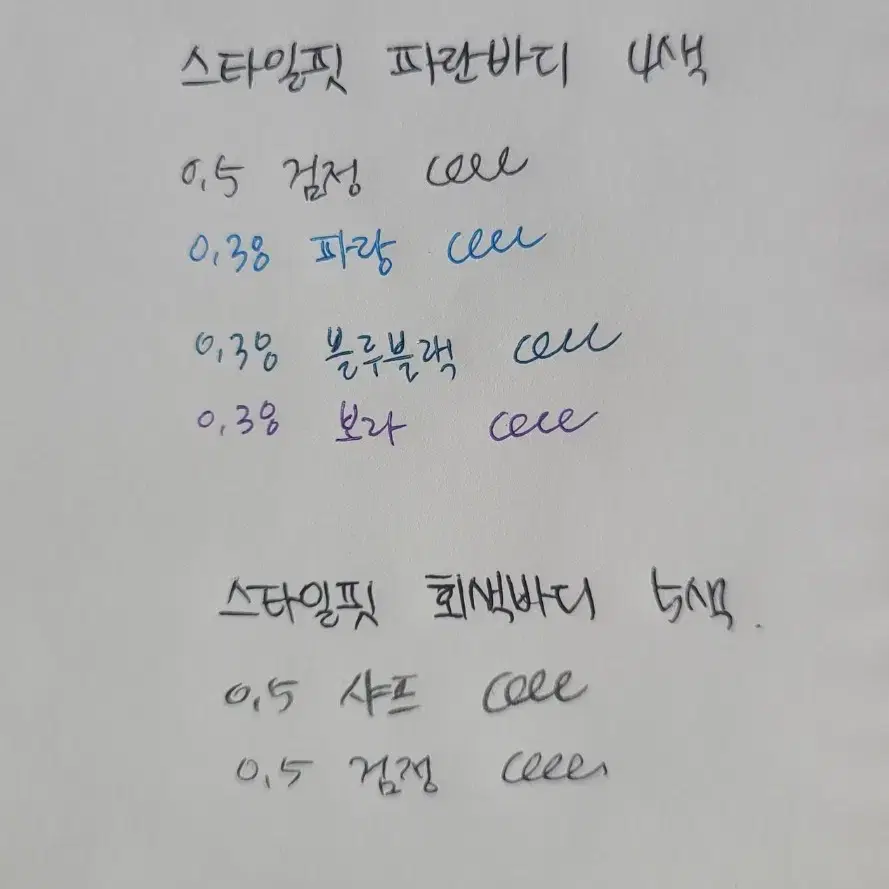 스타일핏 파란바디 4색
0.5 검정
0.38 파랑
0.38 블루블랙
0.38 보라
스타일핏 회색바디 5색.
0.5 샤프
0.5 검정